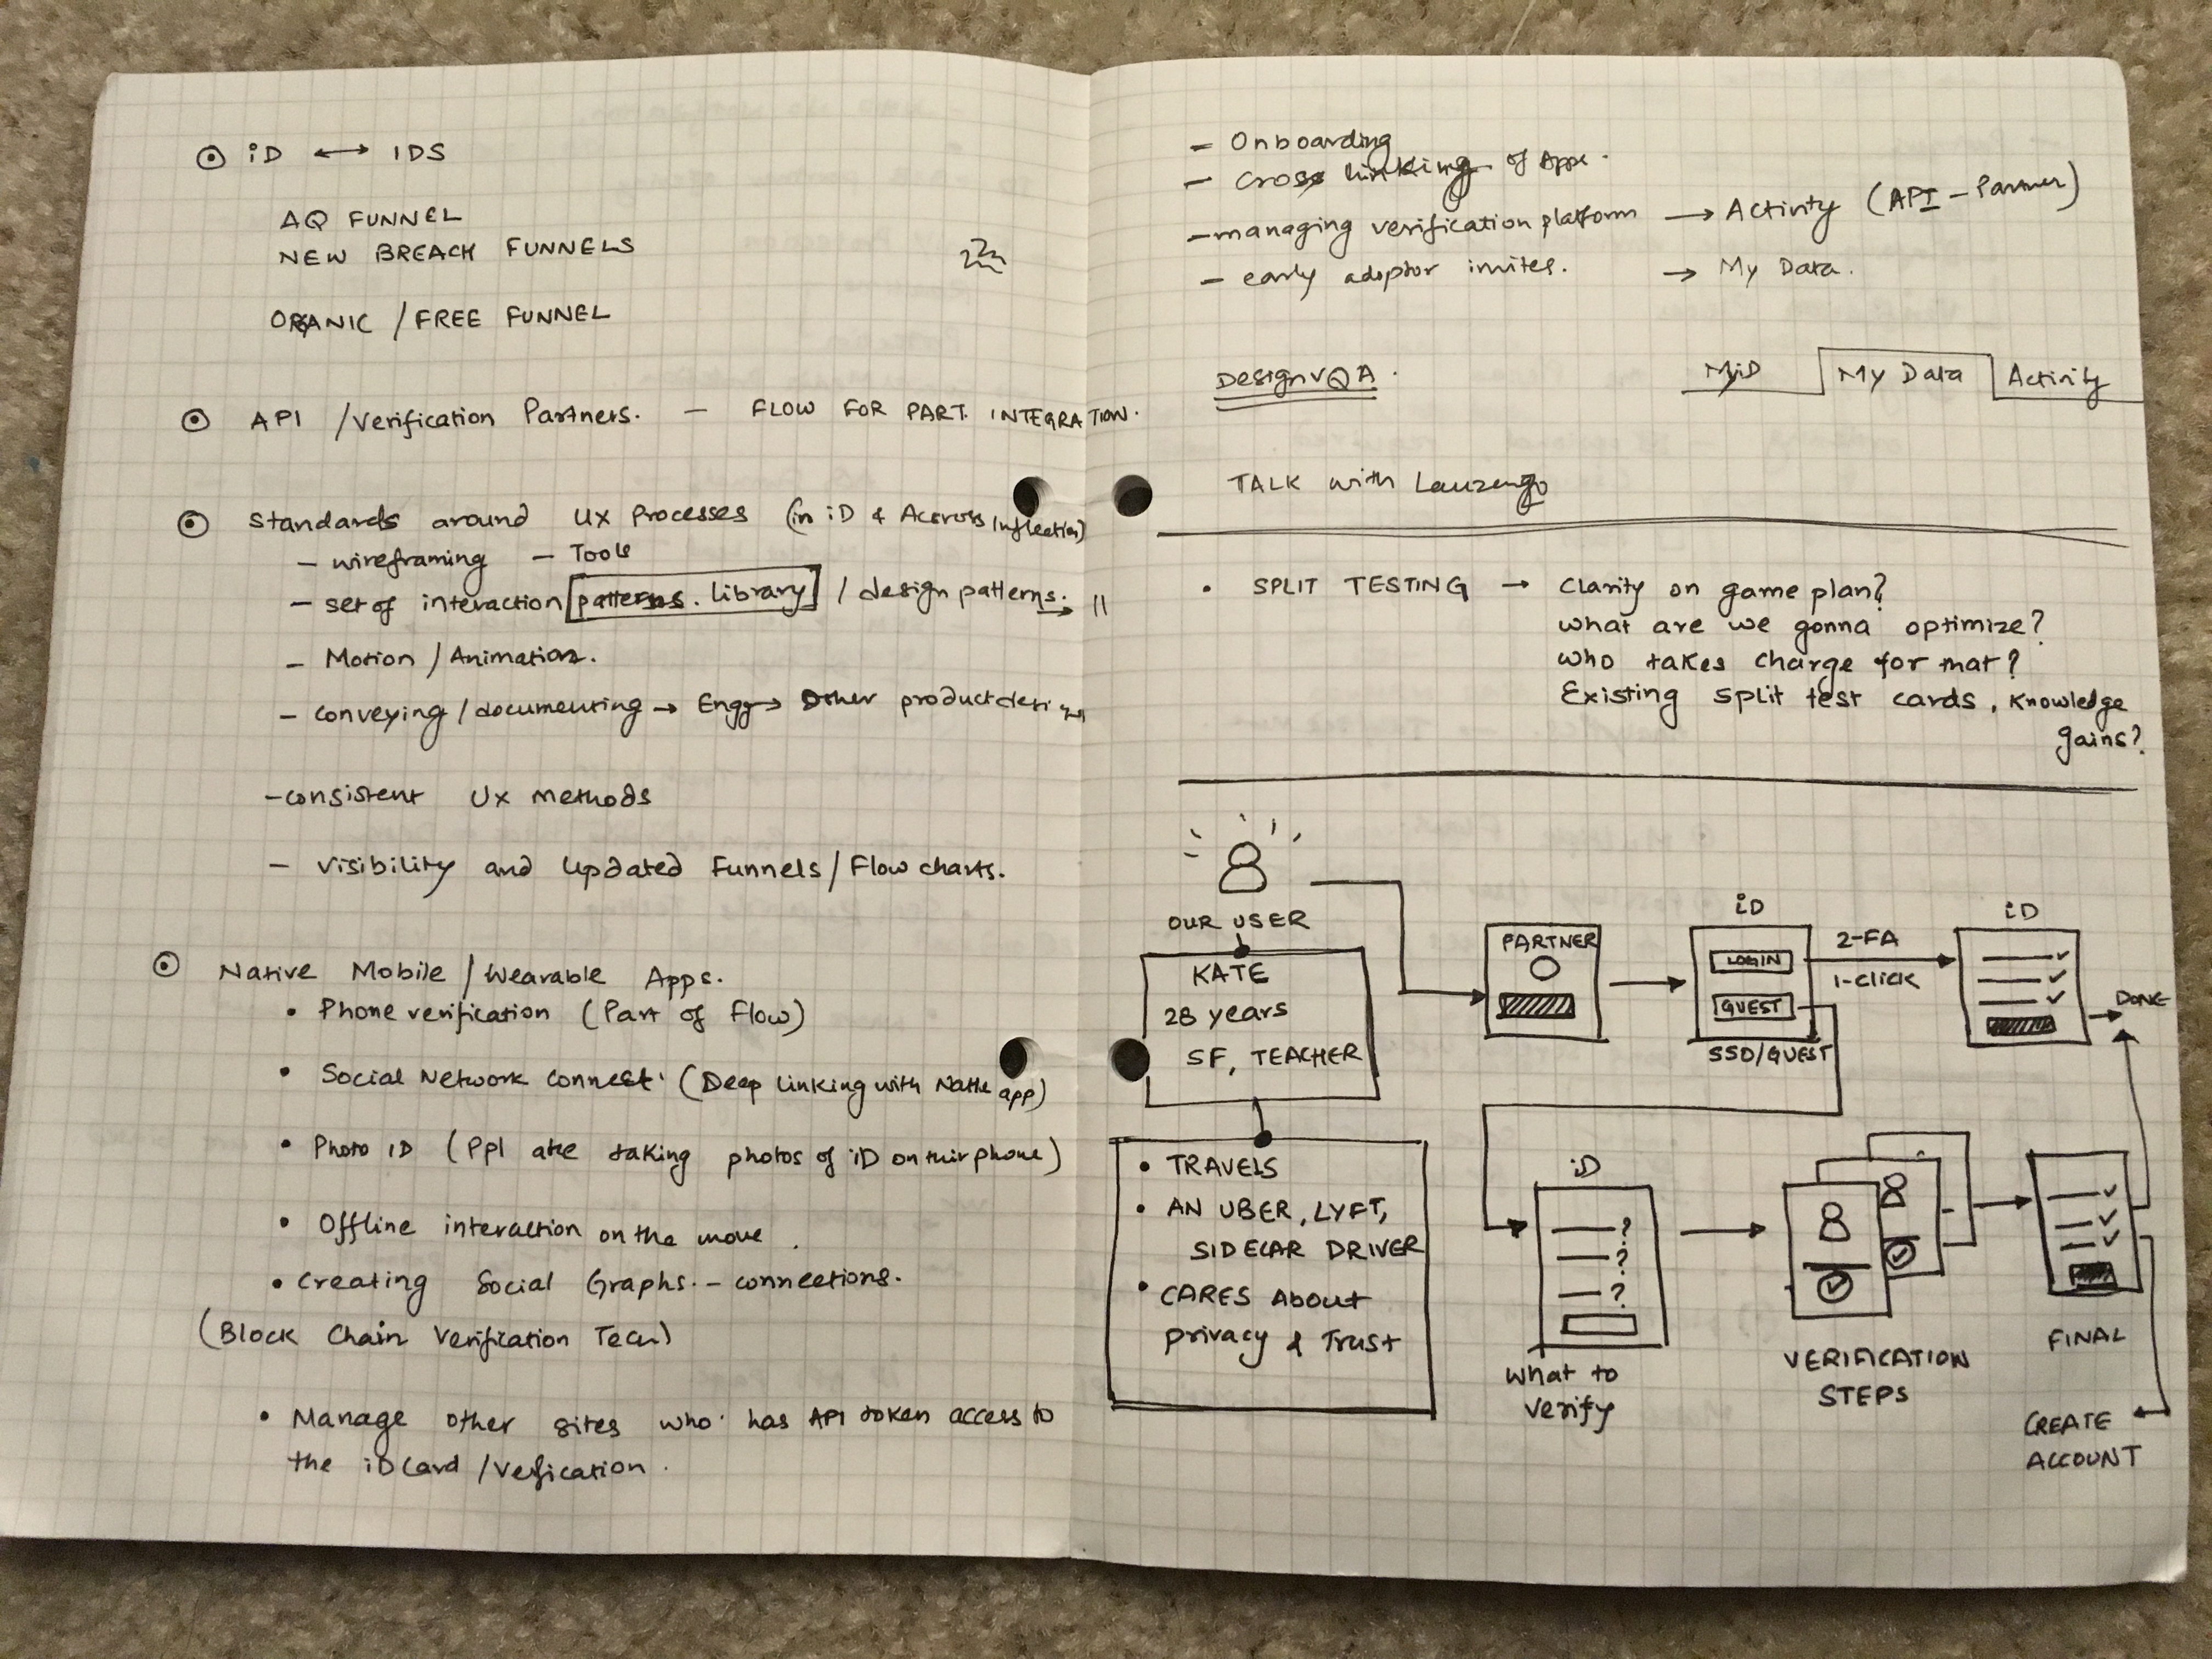 iD ⟷ IDS
AQ FUNNEL
NEW BREACH FUNNELS
ORGANIC / FREE FUNNEL
API / Verification Partners. – FLOW FOR PART. INTEGRATION.
Standards around UX Processes (in iD & Across Inflection)
– wireframing – Tools
– set of interaction patterns. library / design patterns. →
– Motion / Animation.
– conveying / documenting → Engg → Other product design
– consistent UX methods
– visibility and updated Funnels / Flow charts.
Native Mobile / Wearable Apps.
• Phone verification (Part of Flow)
• Social Network connect. (Deep linking with Native app)
• Photo ID (Ppl are taking photos of iD on their phone)
• Offline interaction on the move.
• Creating Social Graphs. – connections.
(Block Chain Verification Tech)
• Manage other sites who has API token access to
the iD Card / Verfication.
– Onboarding
– Cross linking of Apps.
– managing verification platform → Activity (API – Partner)
– early adoptor invites. → My Data.
Design QA.
MyiD My Data Activity
TALK with
• SPLIT TESTING → Clarity on game plan?
what are we gonna optimize?
who takes charge for that?
Existing split test cards, knowledge
gains?
OUR USER
KATE
28 years
SF, TEACHER
• TRAVELS
• AN UBER, LYFT,
SIDECAR DRIVER
• CARES About
privacy & Trust
PARTNER
iD
LOGIN
GUEST
SSO/GUEST
2-FA
1-click
iD
DONE
iD
?
?
?
What to
Verify
VERIFICATION
STEPS
FINAL
CREATE
ACCOUNT